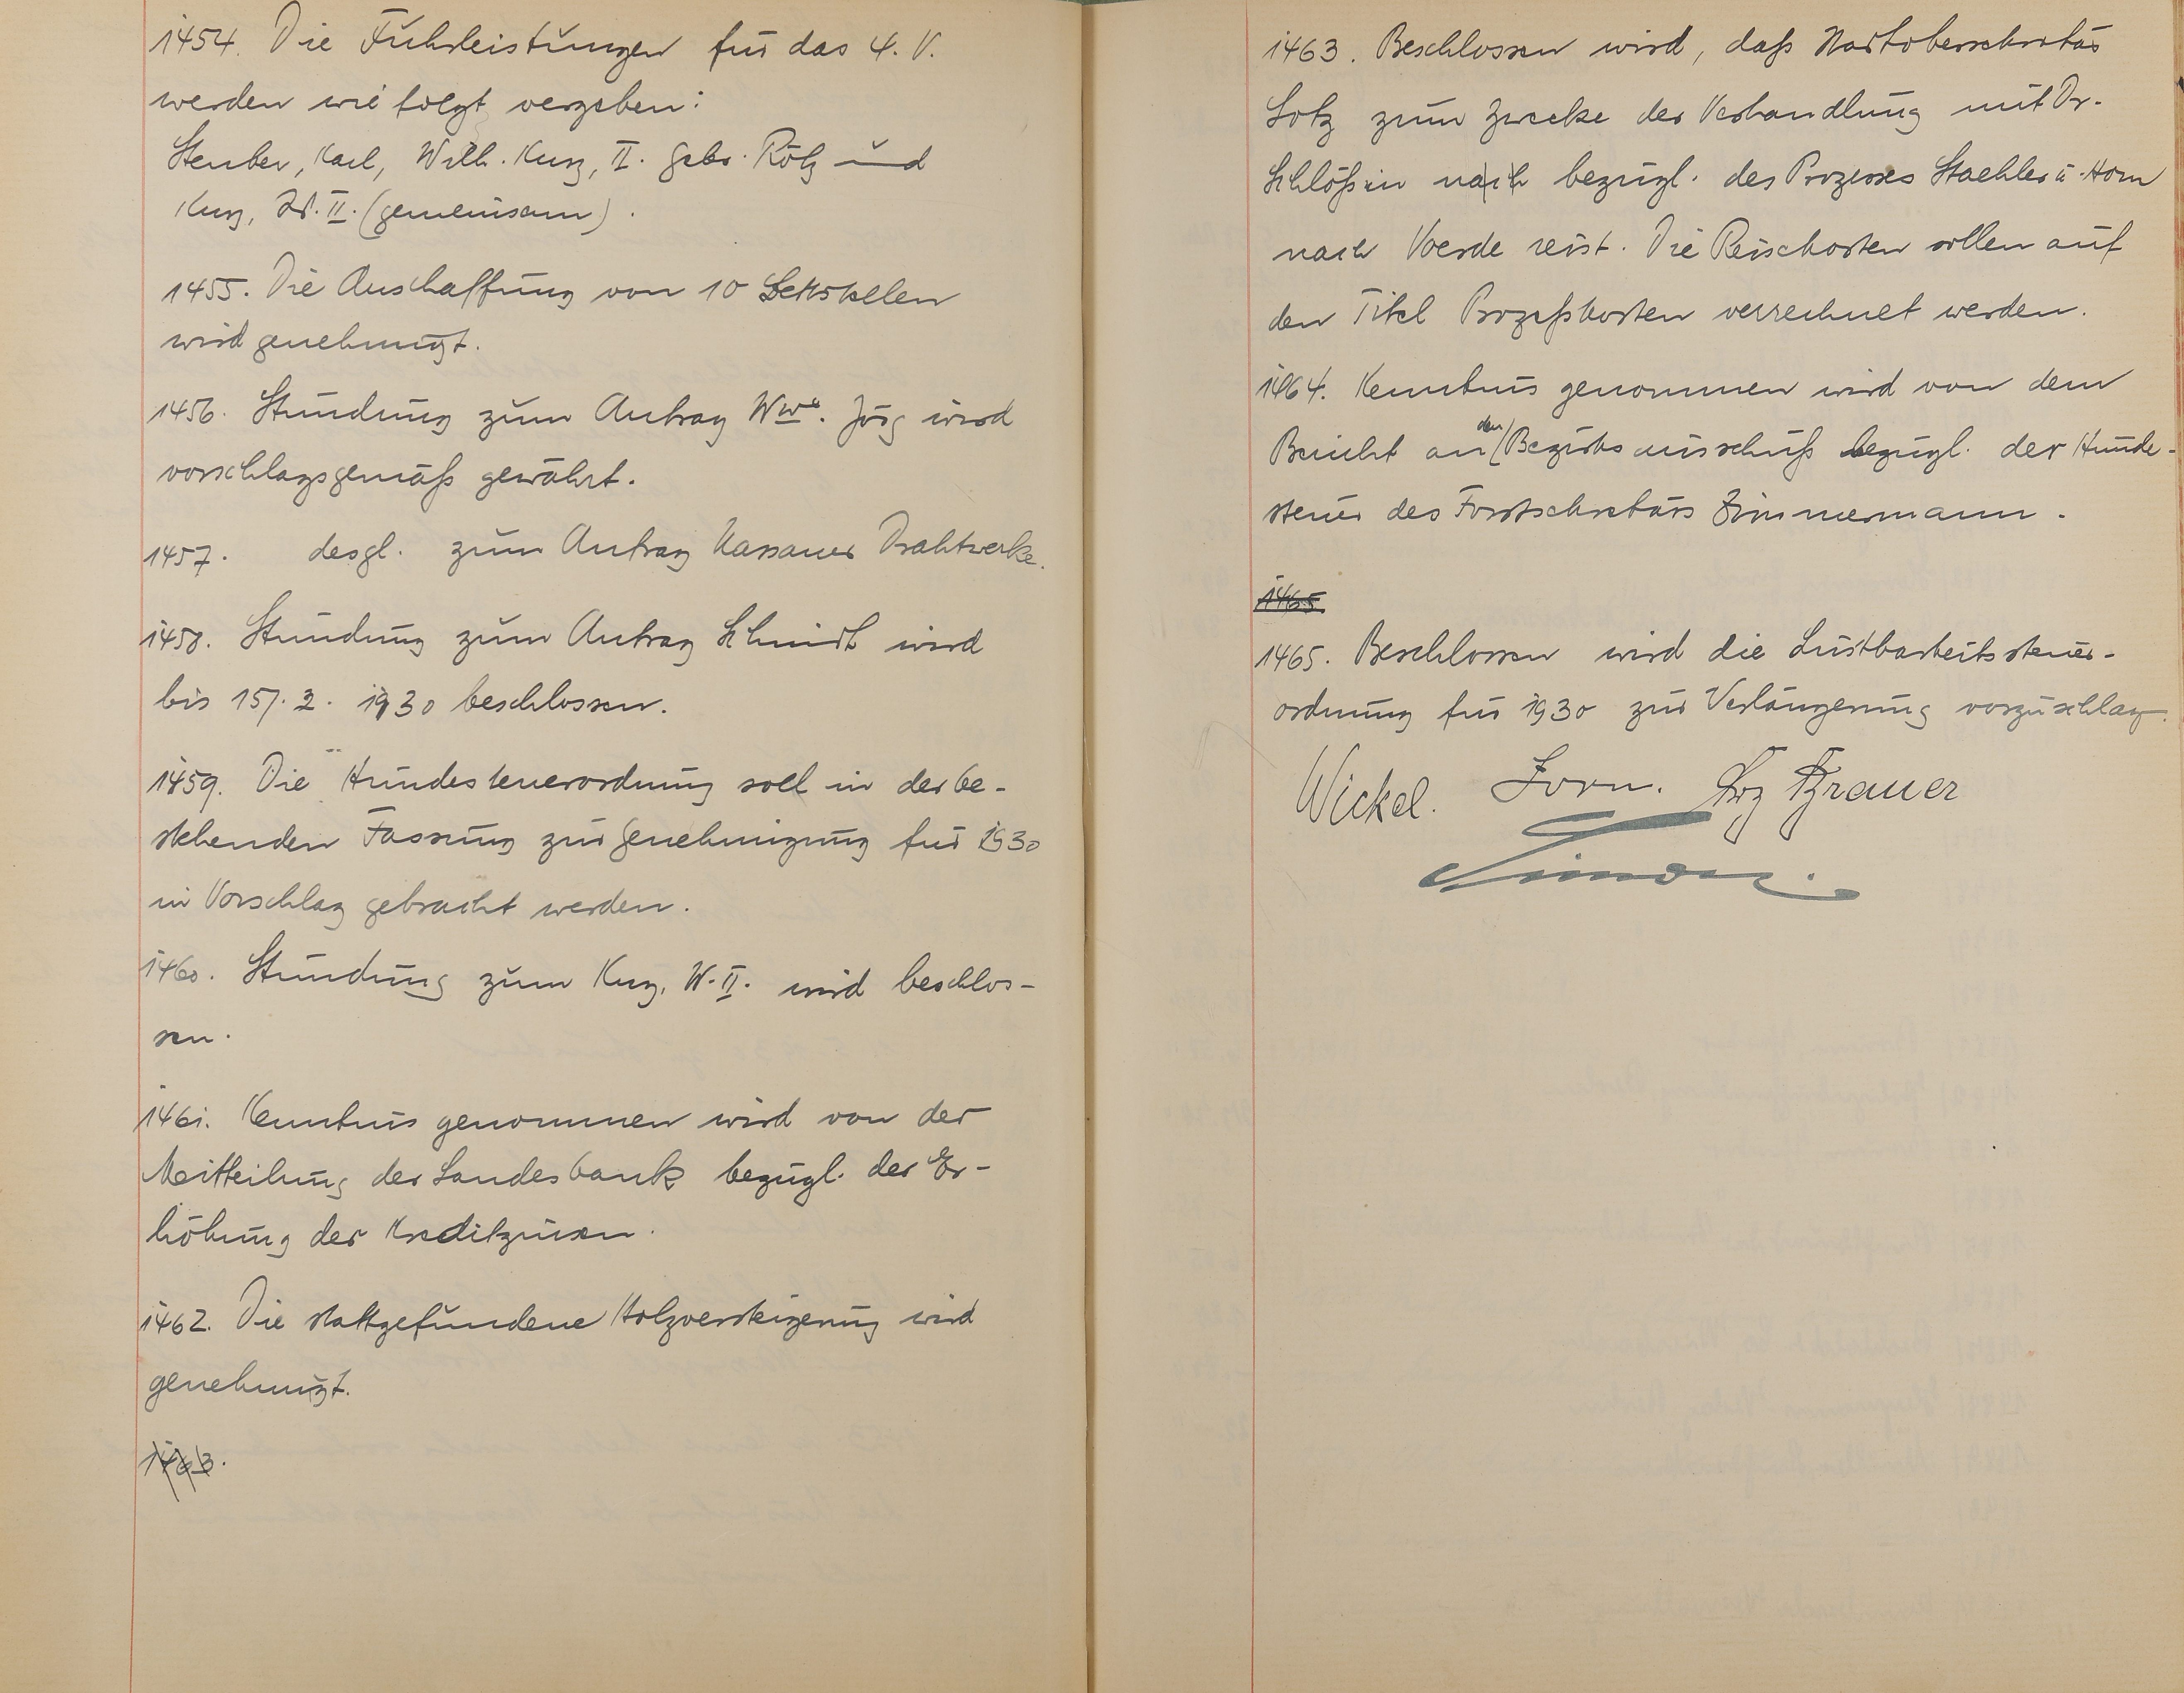 1454. Die Fuhrleistungen für das 4. V.
werden wie folgt vergeben:
Steuber, Karl, Wilh. Kunz, II. Gebr. Rötz und
Kunz, W. II. (gemeinsam).
1455. Die Anschaffung von 10 Bettstellen
wird genehmigt.
1456. Stundung zum Antrag Wwe. Jörg wird
vorschlagsgemäß gewährt.
1457. desgl. zum Antrag Nassauer Drahtwerke.
1458. Stundung zum Antrag Schmidt wird
bis 15.2. 1930 beschlossen.
1459. Die Hundesteuerordnung soll in der be-
stehenden Fassung zur Genehmigung für 1930
in Vorschlag gebracht werden.
1460. Stundung zum Kunz, W. II. wird beschlos-
sen.
1461. Kenntnis genommen wird von der
Mitteilung der Landesbank bezügl. der Er-
höhung der Kreditzinsen.
1462. Die stattgefundene Holzversteigerung wird
genehmigt.
1463.
1463. Beschlossen wird, daß Stadtobersekretär
Lotz zum Zwecke der Verhandlung mit Dr.
Schlößin nach bezügl. des Prozesses Staehler u. Horn
nach Voerde reist. Die Reisekosten sollen auf
den Titel Prozeßkosten verrechnet werden.
1464. Kenntnis genommen wird von dem
Bericht an den Bezirksausschuß bezügl. der Hunde-
steuer des Forstsekretärs Zimmermann.
1465.
1465. Beschlossen wird die Lustbarkeitssteuer-
ordnung für 1930 zur Verlängerung vorzuschlag.
Wickel. Zorn. Frz Brauer